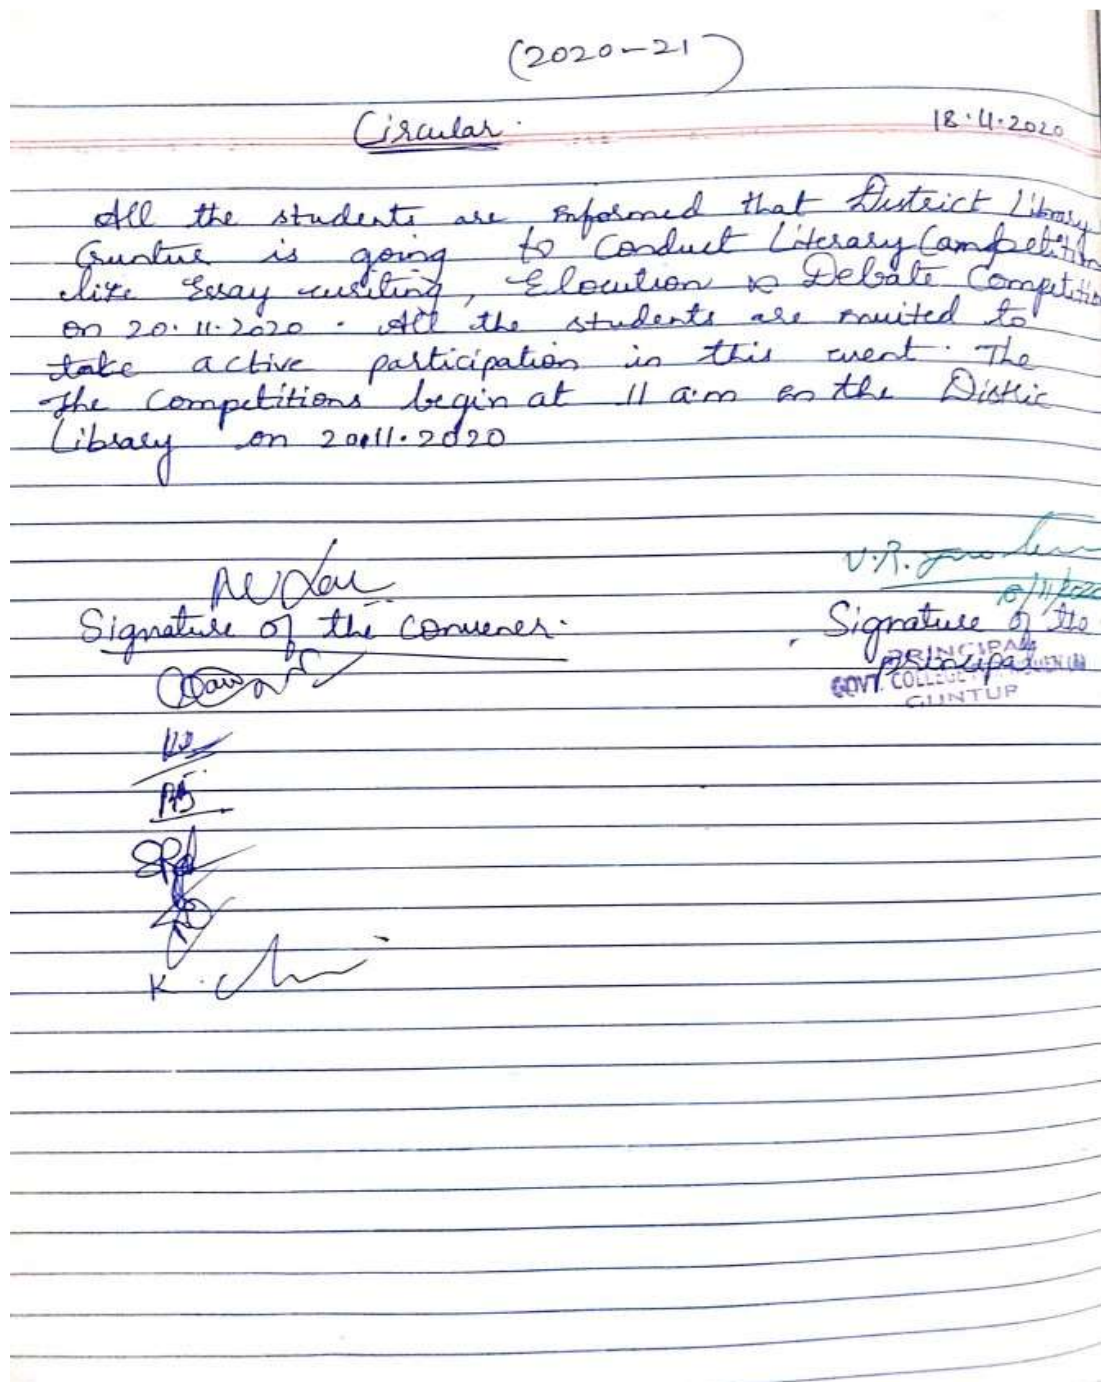 (2020-21)
Circular.
18.11.2020
All the students are informed that District Library
Guntur is going to Conduct Literary Competition
like Essay writing, Elocution & Debate Competition
on 20.11.2020. All the students are invited to
take active participation in this event. The
The Competitions begin at 11 a.m in the Distric
Library on 20.11.2020
V.R.
Signature of the Convener.
Signature of the
Principal
PRINCIPAL
GOVT. COLLEGE WOMEN (A)
GUNTUR
K.